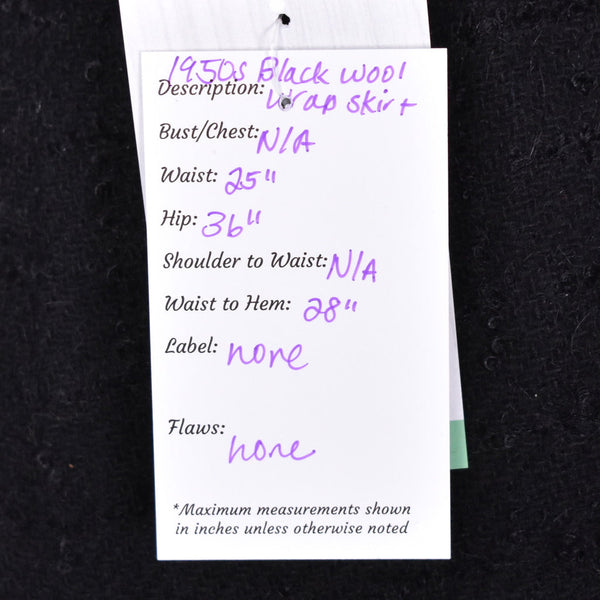 1950s Black wool
Description: wrap skirt
Bust/Chest: N/A
Waist: 25"
Hip: 36"
Shoulder to Waist: N/A
Waist to Hem: 28"
Label: none
Flaws:
none
*Maximum measurements shown
in inches unless otherwise noted